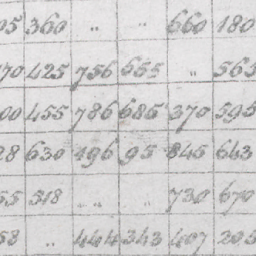 05 360 " " 660 180
70 425 756 655 " 565
00 455 786 685 370 595
28 630 196 95 845 643
55 518 " " 730 670
58 " 444 343 407 205